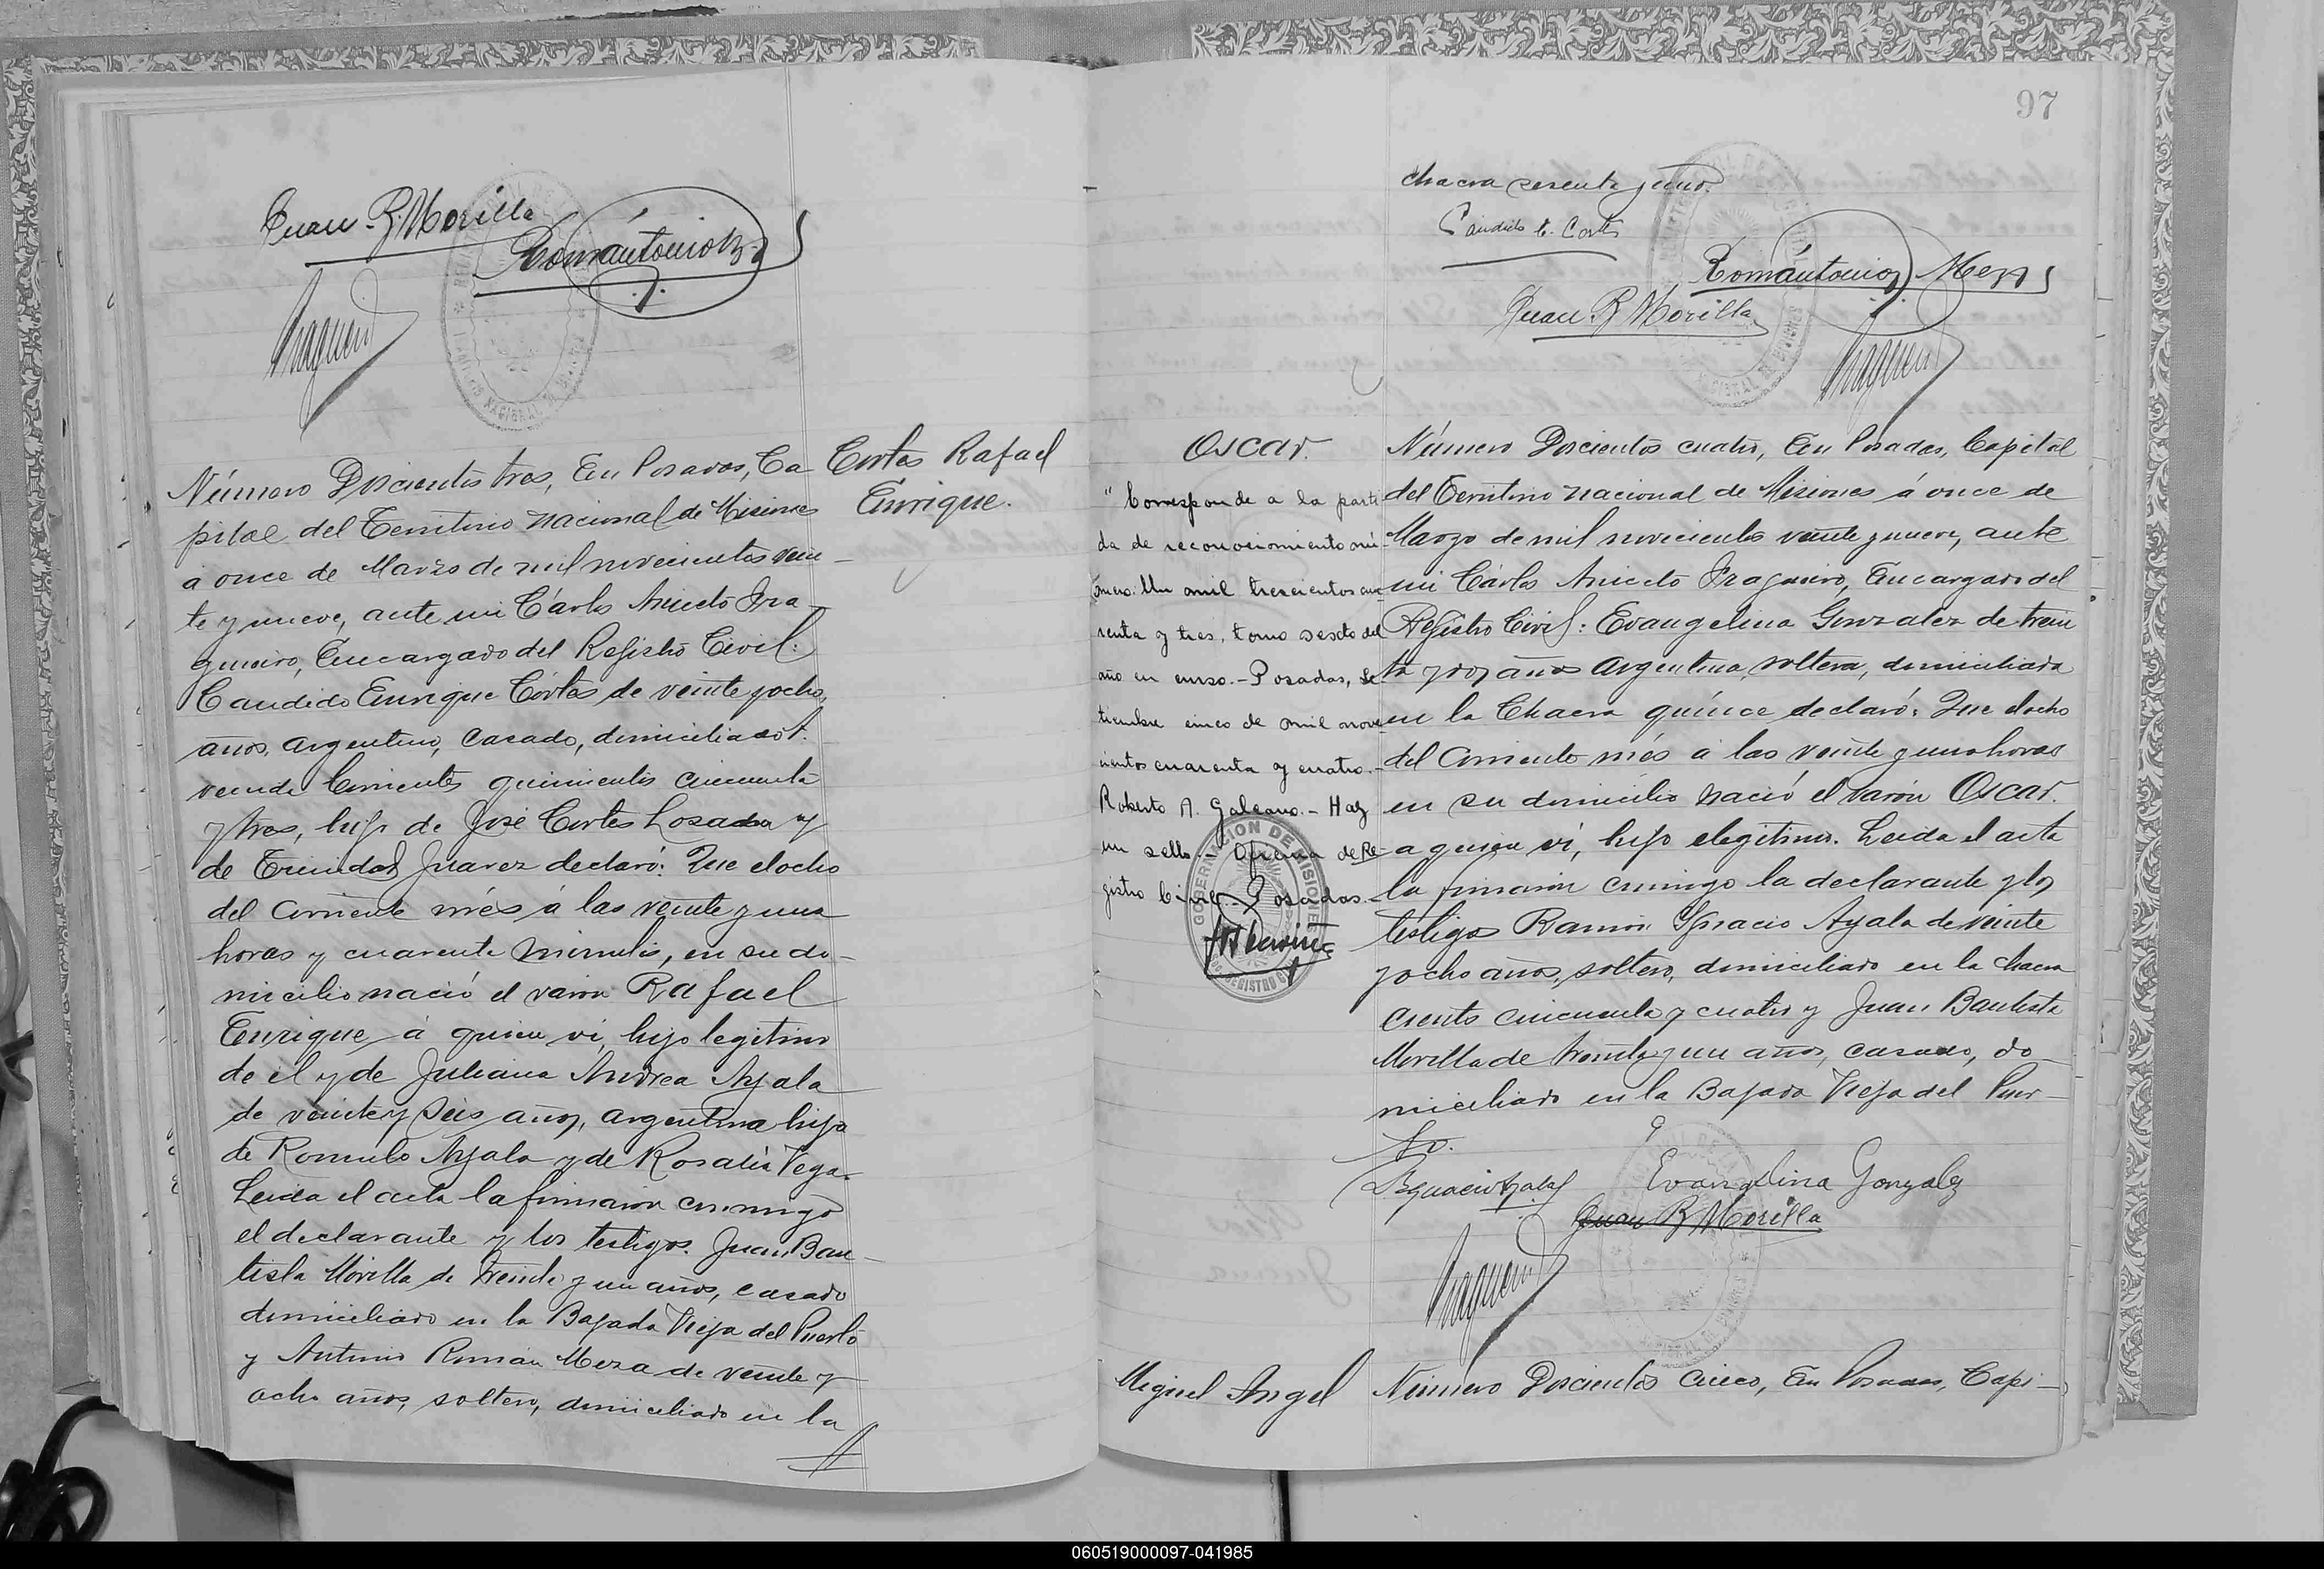 Juan B. Morilla
Número Doscientos tres, En Posadas, Ca-
pital del Territorio Nacional de Misiones
á once de Marzo de mil novecientos vein-
te y nueve, ante mi Cárlos Aniceto Fra-
gueiro, Encargado del Registro Civil:
Candido Enrique Córtes de veinte y ocho
años, argentino, casado, domiciliado A-
venida Corrientes quinientos cincuenta
y tres, hijo de José Cortes Losada y
de Trinidad Juarez declaró: Que el ocho
del corriente més á las veinte y una
horas y cuarenta minutos, en su do-
micilio nació el varon Rafael
Enrique á quien ví, hijo legítimo
de el y de Juliana Andrea Ayala
de veinte y seis años, argentina hija
de Romulo Ayala y de Rosalía Vega.
Leida el acta la firmaron conmigo
el declarante y los testigos. Juan Bau-
tista Morilla de treinta y un años, casado
domiciliado en la Bajada Vieja del Puerto
y Antonio Román Meza de veinte y
ocho años, soltero, domiciliado en la
Cortes Rafael
Enrique.
97
chacra sesenta y uno.
Candido E. Cortes
Juan B. Morilla
Oscar.
"Corresponde a la parti-
da de reconocimiento nú-
mero: Un mil trescientos cua-
renta y tres, tomo sexto del
año en curso.- Posadas, Se-
tiembre cinco de mil nove-
cientos cuarenta y cuatro.-
Roberto A. Galeano.- Hay
un sello.- Oficina de Re-
gistro Civil- Posadas.-
GOBERNACION DE MISIONES
Número Doscientos cuatro, En Posadas, Capital
del Territorio Nacional de Misiones á once de
Marzo de mil novecientos veinte y nueve, ante
mi Cárlos Aniceto Fragueiro, Encargado del
Registro Civil: Evangelina Gonzalez de trein
ta y dos años argentina, soltera, domiciliada
en la Chacra quince declaró: Que el ocho
del corriente més á las veinte y una horas
en su domicilio nació el varón Oscar.
a quien ví, hijo ilegítimo. Leida el acta
la firmaron conmigo la declarante y los
testigos Ramón Ignacio Ayala de veinte
y ocho años, soltero, domiciliado en la chacra
ciento cincuenta y cuatro y Juan Bautista
Morilla de treinta y un años, casado, do-
miciliado en la Bajada Vieja del Puer-
to.
Evangelina Gonzalez
Juan B Morilla
Miguel Angel
Número Doscientos cinco, En Posadas, Capi-
060519000097-041985